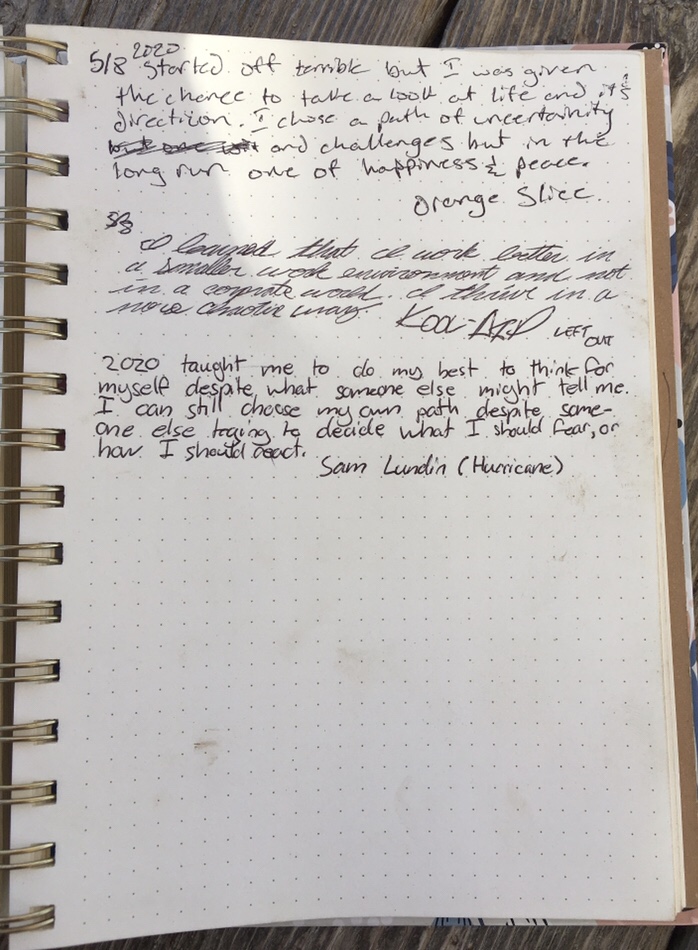 5/8 2020 started off terrible but I was given
the chance to take a look at life and it's
direction. I chose a path of uncertainity
and challenges but in the
long run one of happiness & peace.
Orange Slice
5/8
I learned that I work better in
a smaller work environment and not
in a corprate world. I thrive in a
more chaotic way. KOOL-AID LEFT
OUT
2020 taught me to do my best to think for
myself despite what someone else might tell me.
I can still choose my own path despite some-
one else trying to decide what I should fear, or
how I should react.
Sam Lundin (Hurricane)